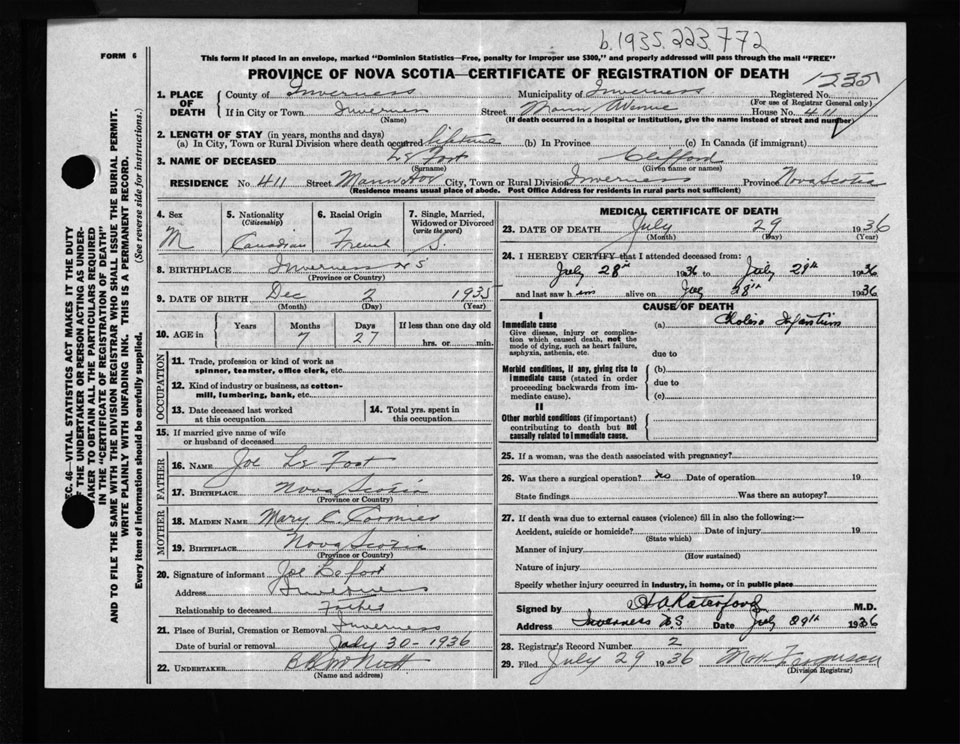 b.1935.223.772
FORM 6
This form if placed in an envelope, marked "Dominion Statistics—Free, penalty for improper use $300," and properly addressed will pass through the mail "FREE"
PROVINCE OF NOVA SCOTIA—CERTIFICATE OF REGISTRATION OF DEATH
1235
1. PLACE OF DEATH County of Inverness Municipality of Inverness Registered No.
(For use of Registrar General only)
If in City or Town Inverness Street Mann Avenue House No. 411
(Name) (If death occurred in a hospital or institution, give the name instead of street and number)
2. LENGTH OF STAY (in years, months and days)
(a) In City, Town or Rural Division where death occurred lifetime (b) In Province (c) In Canada (if immigrant)
3. NAME OF DECEASED Le Fort Clifford
(Surname) (Given name or names)
RESIDENCE No. 411 Street Mann Ave City, Town or Rural Division Inverness Province Nova Scotia
(Residence means usual place of abode. Post Office Address for residents in rural parts not sufficient)
4. Sex 5. Nationality (Citizenship) 6. Racial Origin 7. Single, Married, Widowed or Divorced (write the word)
M Canadian French S.
8. BIRTHPLACE Inverness N S
(Province or Country)
9. DATE OF BIRTH Dec 2 1935
(Month) (Day) (Year)
10. AGE in Years Months Days If less than one day old
7 27 hrs. or min.
OCCUPATION
11. Trade, profession or kind of work as spinner, teamster, office clerk, etc.
12. Kind of industry or business, as cotton-mill, lumbering, bank, etc.
13. Date deceased last worked at this occupation 14. Total yrs. spent in this occupation
15. If married give name of wife or husband of deceased
FATHER
16. NAME Joe Le Fort
17. BIRTHPLACE Nova Scotia
(Province or Country)
MOTHER
18. MAIDEN NAME Mary C Cormier
19. BIRTHPLACE Nova Scotia
(Province or Country)
20. Signature of informant Joe Lefort
Address Inverness
Relationship to deceased Father
21. Place of Burial, Cremation or Removal Inverness
Date of burial or removal July 30-1936
22. UNDERTAKER
(Name and address)
MEDICAL CERTIFICATE OF DEATH
23. DATE OF DEATH July 29 1936
(Month) (Day) (Year)
24. I HEREBY CERTIFY that I attended deceased from:
July 28th 1936 to July 29th 1936
and last saw h im alive on July 28th 1936
CAUSE OF DEATH
I
Immediate cause (a) Cholera Infantum
Give disease, injury or complication which caused death, not the mode of dying, such as heart failure, asphyxia, asthenia, etc.
due to
Morbid conditions, if any, giving rise to immediate cause (stated in order proceeding backwards from immediate cause).
(b)
due to
(c)
II
Other morbid conditions (if important) contributing to death but not causally related to immediate cause.
25. If a woman, was the death associated with pregnancy?
26. Was there a surgical operation? no Date of operation 19
State findings Was there an autopsy?
27. If death was due to external causes (violence) fill in also the following:—
Accident, suicide or homicide? Date of injury 19
(State which)
Manner of injury
(How sustained)
Nature of injury
Specify whether injury occurred in industry, in home, or in public place
Signed by M.D.
Address Inverness N.S. Date July 29th 1936
28. Registrar's Record Number 2
29. Filed July 29 1936 Ferguson
(Division Registrar)
SEC. 46—VITAL STATISTICS ACT MAKES IT THE DUTY
OF THE UNDERTAKER OR PERSON ACTING AS UNDER-
TAKER TO OBTAIN ALL THE PARTICULARS REQUIRED
IN THE "CERTIFICATE OF REGISTRATION OF DEATH"
AND TO FILE THE SAME WITH THE DIVISION REGISTRAR WHO SHALL ISSUE THE BURIAL PERMIT.
WRITE PLAINLY WITH UNFADING INK. THIS IS A PERMANENT RECORD.
Every item of information should be carefully supplied. (See reverse side for instructions.)